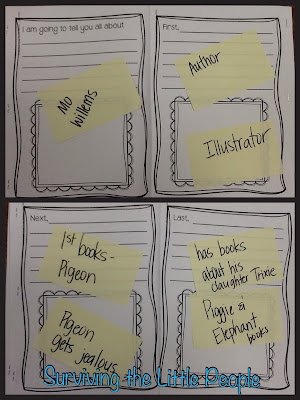 I am going to tell you all about
Mo
Willems
First,
Author
Illustrator
Next,
1st books-
Pigeon
Pigeon
gets jealous
Last,
has books
about his
daughter Trixie
Piggie &
Elephant
books
Surviving the Little People